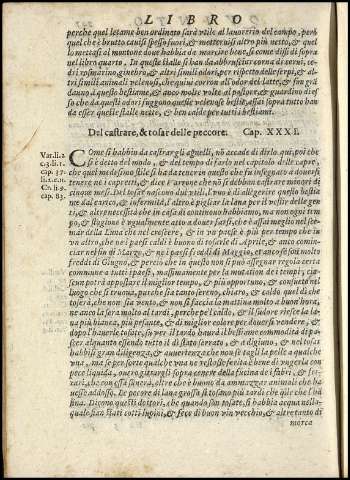 LIBRO
perche quel letame ben ordinato sarà vtile al lauorerio del campo, però
quel che è brutto cauisi spesso fuori, & metteruisi altro più netto, & quel
lo mettasi al montone doue habbia da marcire bene, si come dissi di sopra
nel libro quarto. In queste stalle si han da abbrusciar corna di cerui, ce-
dri rosmarino, ginebro, & altri simili odori, per rispetto delle serpi, & al-
tri simili animali velenosi, che quiui corron all'odor del latte, & fan grā
danno a queste bestiame, & anco molte volte al pastore, & guardino di es
so che da questi odori fuggono queste velenose bestie, assai sopra tutto han
da esser queste stalle nette, & ben calde di tutti i bestiami.
Del castrare, & tosar delle peccore. Cap. XXXI.
Var. li. 2
c. 3. li. 1.
cap. 37.
li. 2. c. 11.
Cr. li. 9.
cap. 83.
COme si habbin da castrar gli agnelli, nō accade di dirlo qui, poi che
si è detto del modo, & del tempo di farlo nel capitolo delle capre,
che quel medesimo stile si ha da tener in questo che fu insegnato a douersi
tenere ne i capretti, & dice Varrone che nō si debbano castrare minori di
cinque mesi. Del tosar nascono due vtili, l'uno è di alleggerir questa bestia
me dal carico, & infermità, l'altro è pigliar la lana per il vestir delle gen
ti, & altre necessità che in casa di continouo habbiamo, ma a non ogni tem
po, & stagione è vgualmente atto a douer farsi, che è assai meglio nel sce-
mar della Luna che nel crescere, & in vn paese è più per tempo che in
vn altro, che ne i paesi caldi è buono di tosarle di Aprile, & anco comin-
ciar nel fin di Marzo, & ne i paesi freddi di Maggio, et anco se son molto
freddi di Giugno, & perciò che in questo non si può assegnar regola certa
commune a tutti i paesi, massimamente per la mutation de i tempi, cia-
scun potrà appostare il miglior tempo, & più opportuno, & consueto nel
luogo che si truoua, pur che sia tanto sereno, chiaro, & caldo quel dì che
toserà, che non sia vento, & non si faccia la mattina molto a buon'hora,
ne anco la sera molto al tardi, perche pe'l caldo, & il sudore riesce la la-
na più bianca, più pesante, & di miglior colore per douersi vendere, &
dopò l'hauerle tosate, se vien il tardo hauerà il bestiame commodità di pa-
scer alquanto essendo tutto il dì stato serrato, & a digiuno, & nel tosar
habbisi gran diligenza, & auuertenza che non si tagli la pelle a qualche
vna, ma se per sorte qualche vna ne restasse ferita è bene di vngerla con
pece liquida, ouero gittargli sopra cenere della fucina de i fabri, & fer-
rari, che con essa sanerà, oltre che è buono da ammazzar animali che ha
uesse adosso. Le pecore di lana grossa si tosano più tardi che q̄lle che l'hā
fina. Dicono questi dottori, che quando son tosate, si habbia acqua nella
quale sian stati cotti lupini, & feccе di buon vin vecchio, & altre tanto di
morca